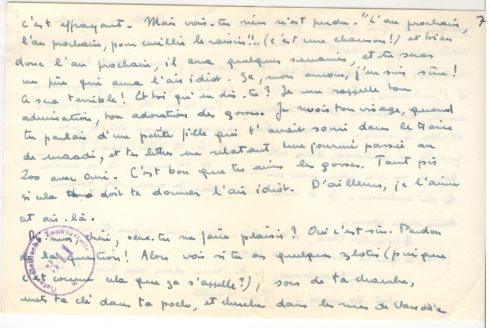 7
c'est effrayant. Mais vois-tu rien n'est perdu. "L'an prochain,
l'an prochain, pour cueillir le raisin"... (c'est une chanson!) et bien
donc l'an prochain, il aura quelques semaines, et tu seras
un père qui aura l'air idiot. Je, mon amour, j'en suis sûre!
sera terrible! Et toi qu'en dis-tu? Je me rappelle ton
admiration, ton adoration des gosses. Je revois ton visage, quand
tu parlais d'une petite fille qui t'avait souri dans le train
de Maadi, et tes lettres me relatant une journée passée au
Zoo avec . C'est bon que tu aimes les gosses. Tant pis
si cela doit te donner l'air idiot. D'ailleurs, je l'aime
cet air-là.
Dis moi chéri, veux-tu me faire plaisir? Oui c'est sûr. Pardon
de la question! Alors vois si tu as quelques zlotis (puisque
c'est comme cela que ça s'appelle?), sors de ta chambre,
mets ta clé dans ta poche, et cherche dans les rues de Varsovie